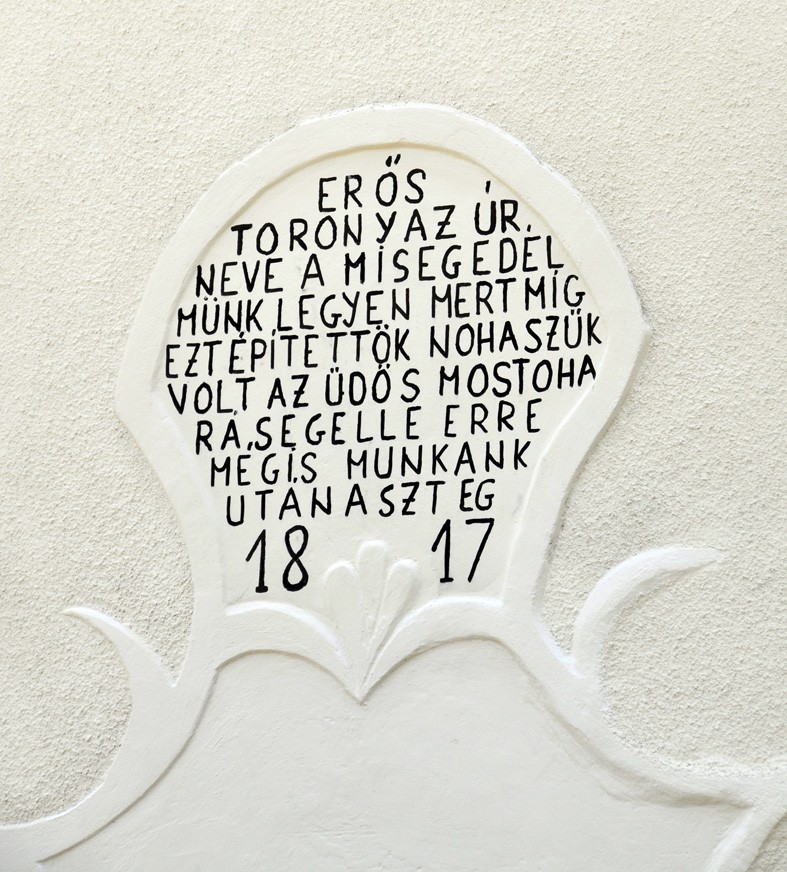 ERŐS
TORONYAZ ÚR.
NEVE A MISEGEDEL
MÜNK LEGYEN MERTMIG
EZTÉPITETTÖK NOHASZŰK
VOLT AZ ÜDŐS MOSTOHA
RÁ.SEGELLE ERRE
MEGIS MUNKANK
UTÁNASZTEG
18 17